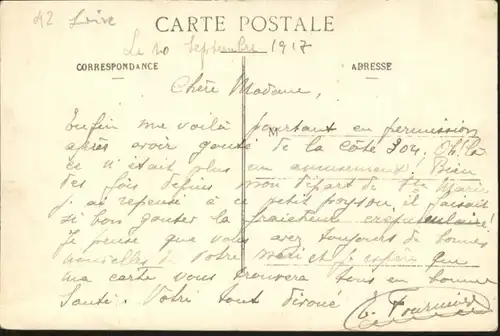 42 Loire
CARTE POSTALE
Le 20 Septembre 1917
CORRESPONDANCE
ADRESSE
Chère Madame,
M
Enfin me voilà pourtant en permission
après avoir gouté de la côte 304. Oh! là
ce n'était plus un amusement! Bien
des fois depuis mon départ de Ste Marie
j'ai repensé à ce petit poyson, il faisait
si bon gouter la fraicheur crepusculaire!
Je pense que vous avez toujours de bonnes
nouvelles de Votre mari et j'espère que
ma carte vous trouvera tous en bonne
Santé. Votre tout dévoué
Fournier